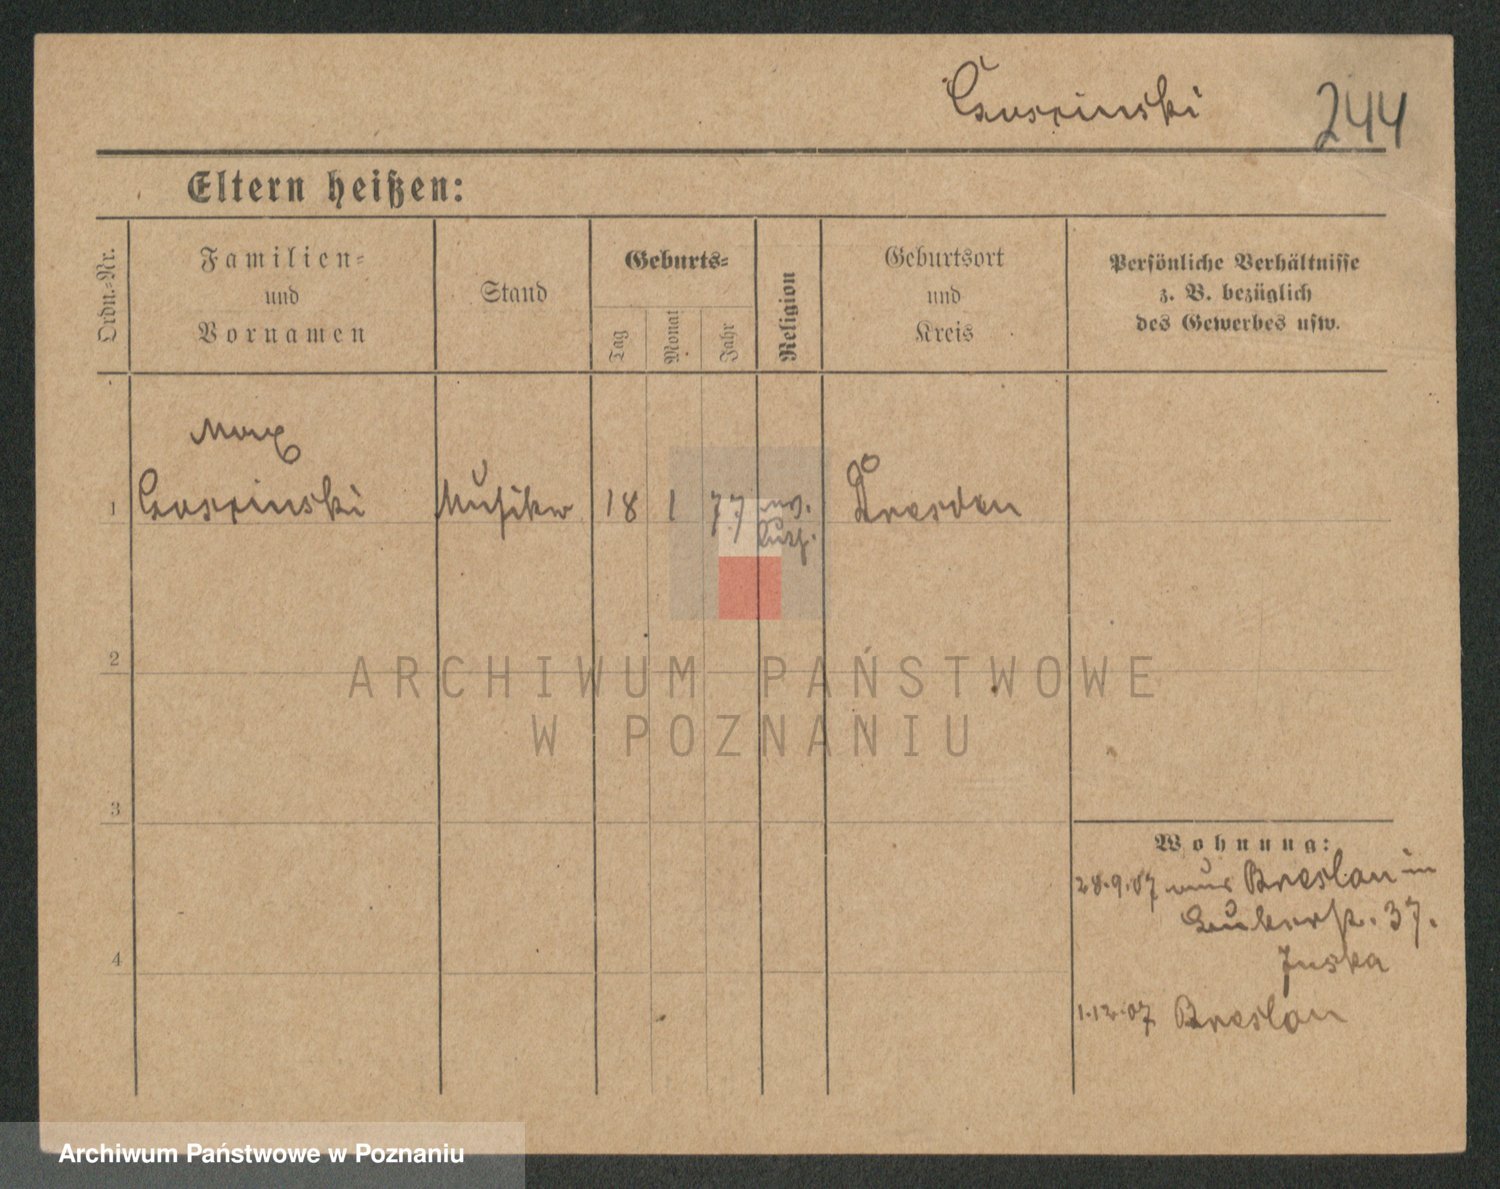 244
Eltern heißen:
Ordn.-Nr.
Familien-
und
Vornamen
Stand
Geburts-
Tag
Monat
Jahr
Religion
Geburtsort
und
Kreis
Persönliche Verhältnisse
z. B. bezüglich
des Gewerbes usw.
Max
1 Musiker 18 1 77 ev. Dresden
Luth.
2
3
4
Wohnung:
28.9.07 aus Breslau in
37.
1.12.07 Breslau
ARCHIWUM PAŃSTWOWE
W POZNANIU
Archiwum Państwowe w Poznaniu